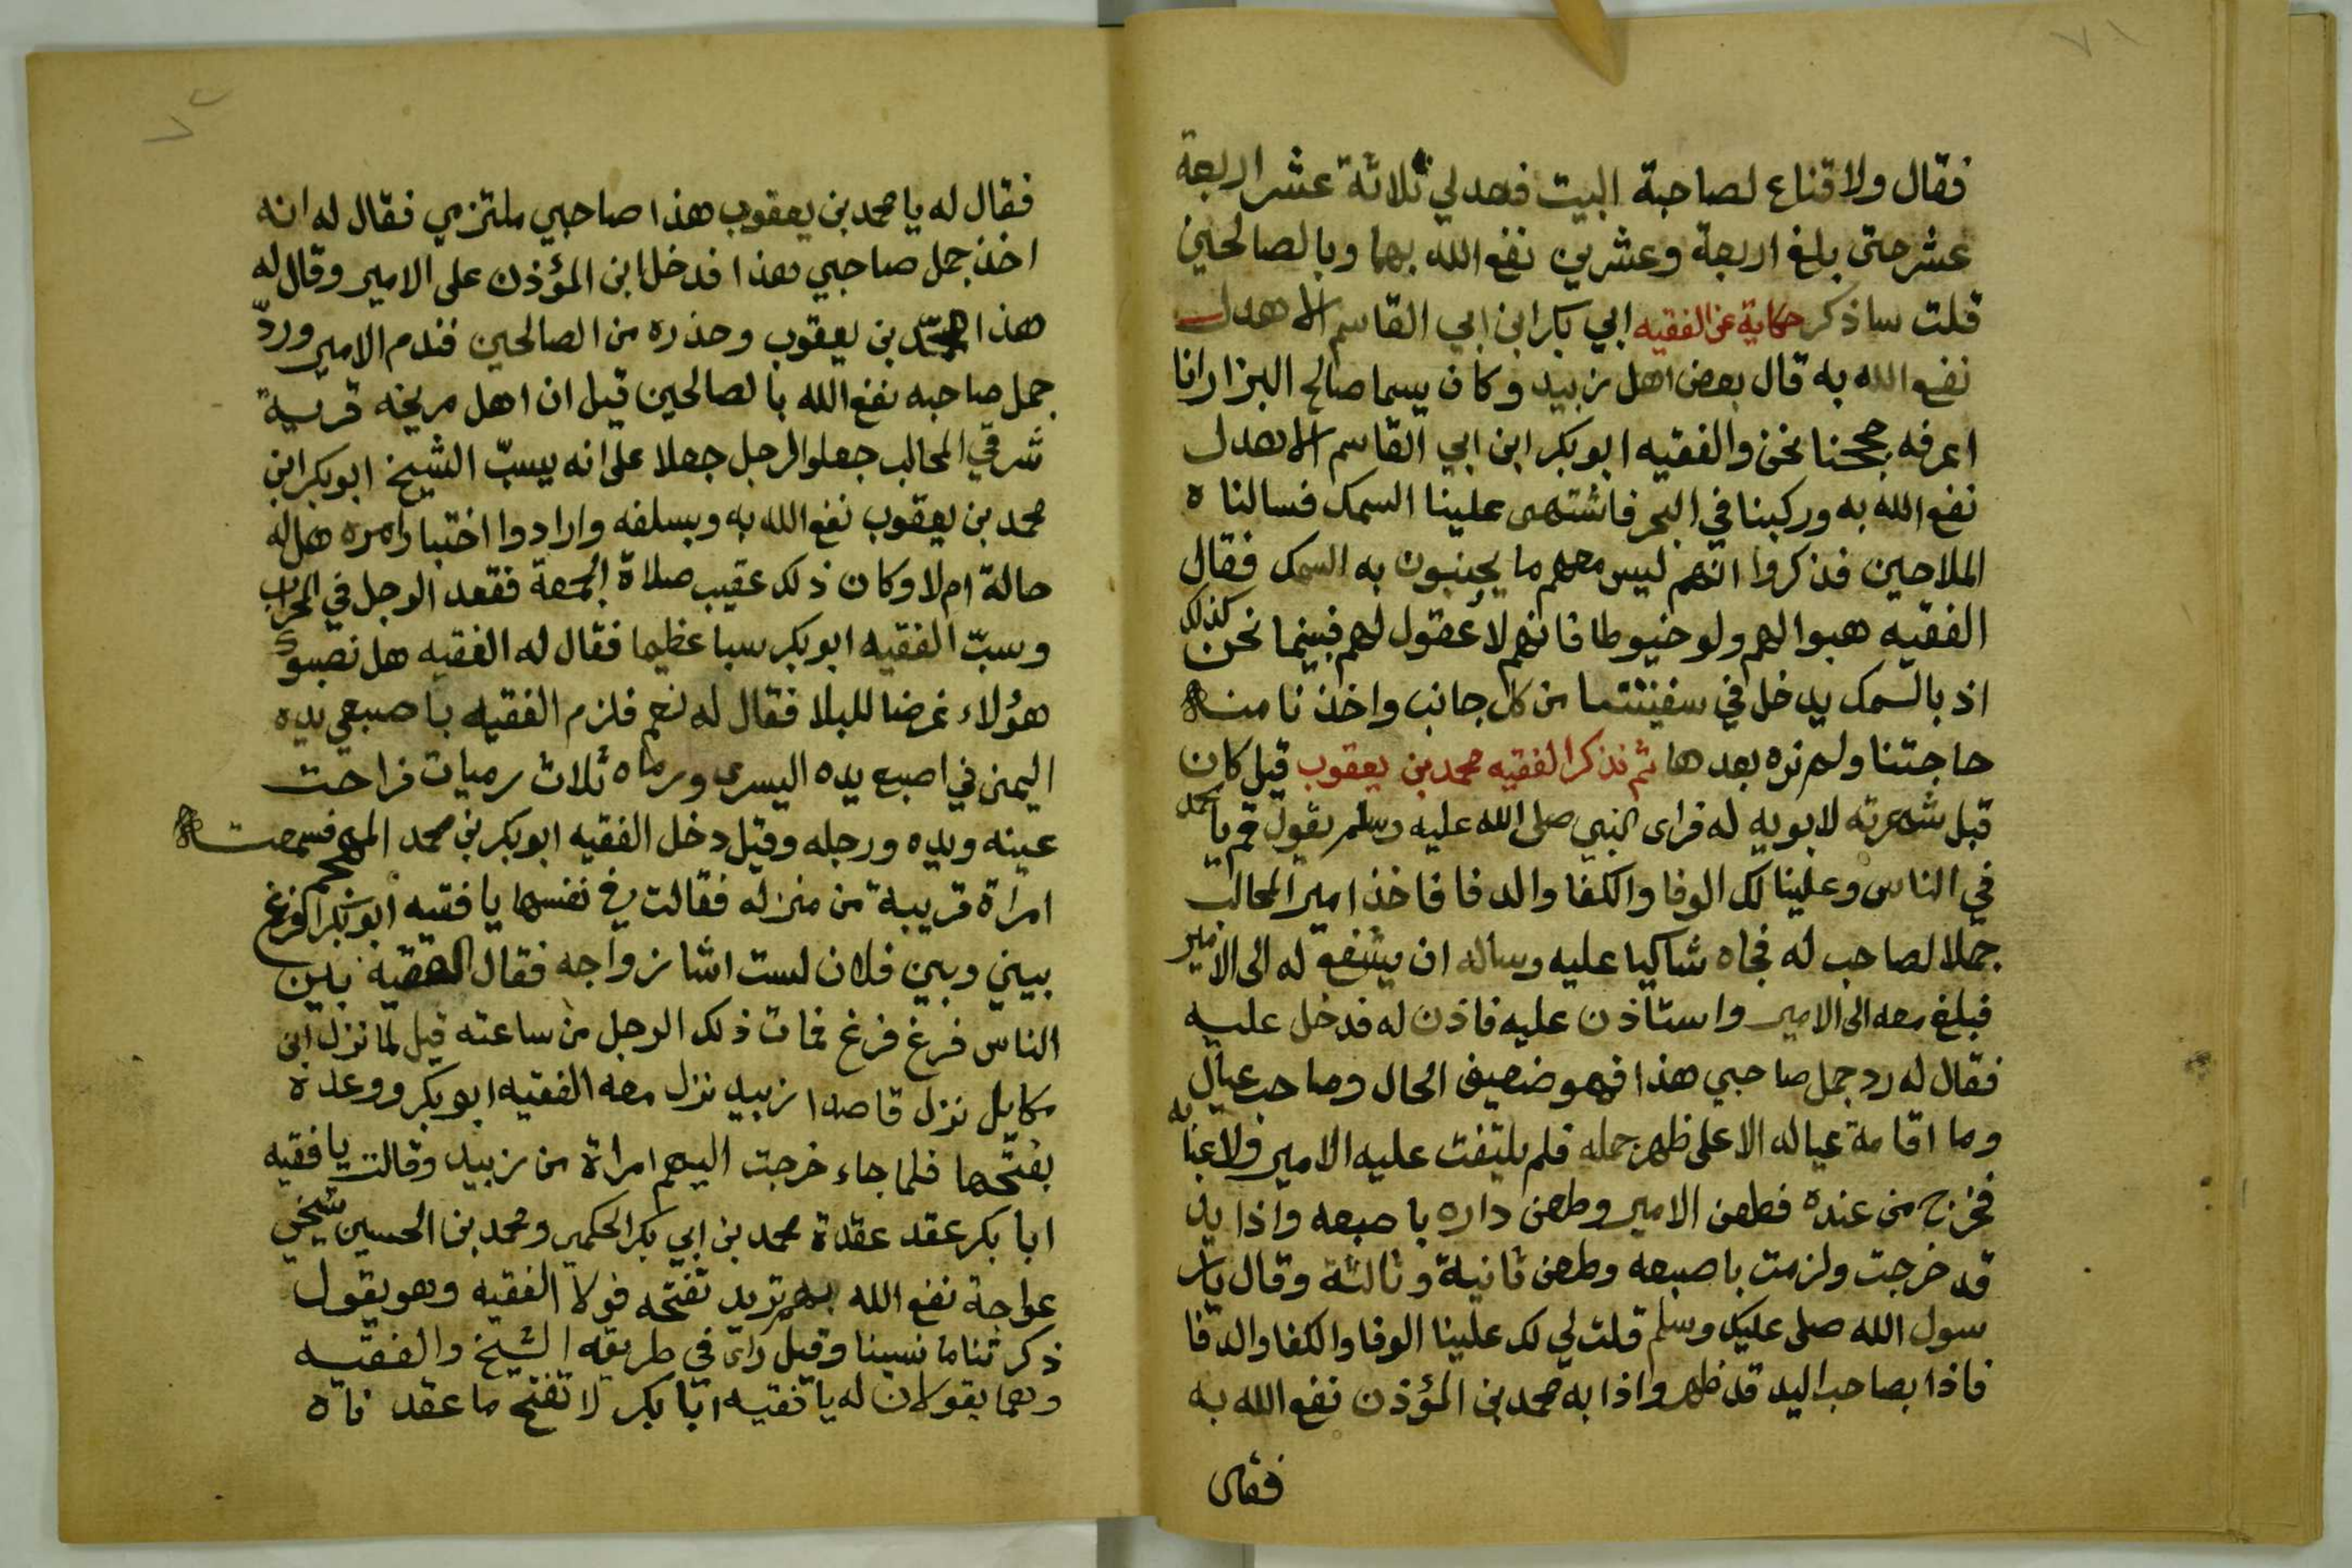 ٧١
فقال ولا قناع لصاحبة البيت فعد لي ثلاثة عشر اربعة
عشر حتى بلغ اربعة وعشرين نفع الله بهما وبالصالحين
قلت ساذكر حكاية عن الفقيه ابي بكر ابن ابي القاسم الاهدل
نفع الله به قال بعض اهل زبيد وكان يسما صالح البزار انا
اعرفه حججنا نحن والفقيه ابو بكر ابن ابي القاسم الاهدل
نفع الله به وركبنا في البحر فاشتهى علينا السمك فسالناه
الملاحين فذكروا انهم ليس معهم ما يجنبون به السمك فقال
الفقيه هبوا لهم ولو خيوطا فانهم لا عقول لهم فبينما نحن كذلك
اذ بالسمك يدخل في سفينتنا من كل جانب واخذنا منه
حاجتنا ولم نره بعدها ثم نذكر الفقيه محمد بن يعقوب قيل كان
قبل شهرته لابويه له فراى النبي صلى الله عليه وسلم يقول قم يا محمد
في الناس وعلينا لك الوفا والكفا والدفا فاخذ امير المحالب
جملا لصاحب له فجاه شاكيا عليه وساله ان يشفع له الى الامير
فبلغ معه الى الامير واستاذن عليه فاذن له فدخل عليه
فقال له رد جمل صاحبي هذا فهو ضعيف الحال وصاحب عيال
وما اقامة عياله الا على ظهر جمله فلم يلتفت عليه الامير ولا عبا به
فخرج من عنده فطعن الامير وطعن داره باصبعه واذا يد
قد خرجت ولزمت باصبعه وطعن ثانية وثالثة وقال يار
سول الله صلى عليك وسلم قلت لي لك علينا الوفا والكفا والدفا
فاذا بصاحب اليد قد ظهر واذا به محمد بن المؤذن نفع الله به
فقال
٧٢
فقال له يا محمد بن يعقوب هذا صاحبي ملتزمي فقال له انه
اخذ جمل صاحبي هذا فدخل ابن المؤذن على الامير وقال له
هذا محمد بن يعقوب وحذره من الصالحين فندم الامير وردّ
جمل صاحبه نفع الله بالصالحين قيل ان اهل مريخه قرية
شرقي المحالب جعلوا لرجل جعلا على انه يسبّ الشيخ ابو بكر ابن
محمد بن يعقوب نفع الله به وبسلفه وارادوا اختبار امره هل له
حالة ام لا وكان ذلك عقيب صلاة الجمعة فقعد الرجل في المحراب
وسبّ الفقيه ابو بكر سبا عظيما فقال له الفقيه هل نصبوك
هؤلاء غرضا للبلا فقال له نعم فلزم الفقيه باصبعي يده
اليمنى في اصبع يده اليسرى ورماه ثلاث رميات فراحت
عينه ويده ورجله وقيل دخل الفقيه ابو بكر بن محمد فسمعت
امراة قريبة من منزله فقالت في نفسها يا فقيه ابو بكر افرغ
بيني وبين فلان لست اشا زواجه فقال الفقيه بين
الناس فرغ فرغ فمات ذلك الرجل من ساعته قيل لما نزل ابن
مكابل نزل قاصدا زبيد نزل معه الفقيه ابو بكر ووعده
بفتحها فلما جاء خرجت اليهم امراة من زبيد وقالت يا فقيه
ابا بكر عقد عقدة محمد بن ابي بكر الحكمي ومحمد بن الحسين شيخي
عواجة نفع الله بهم تريد تفتحه فولا الفقيه وهو يقول
ذكرتنا ما نسينا وقيل راى في طريقه الشيخ والفقيه
وهما يقولان له يا فقيه ابا بكر لا تفتح ما عقدناه